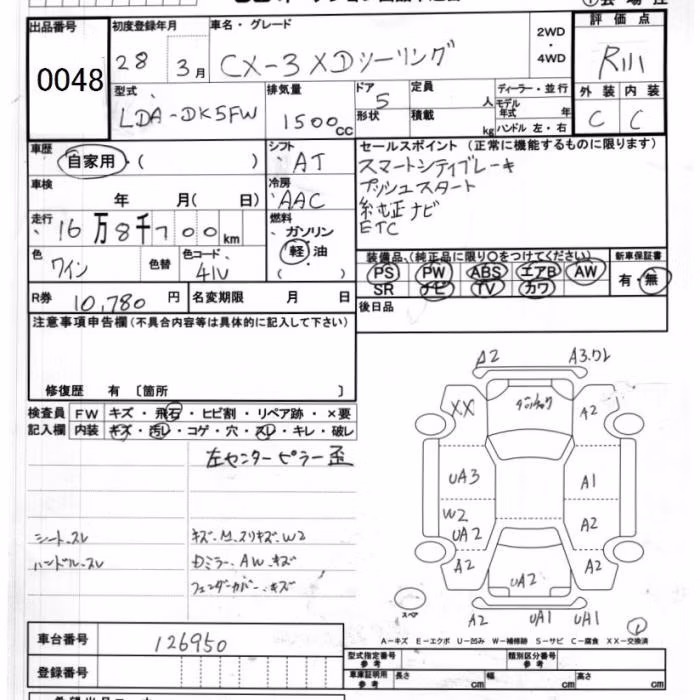 出品番号
0048
初度登録年月
28 3月
車名・グレード
CX-3 XDツーリング
2WD・4WD
評価点
外装 内装
C C
型式
LDA-DK5FW
排気量
1500cc
ドア
5
形状
定員 人
積載 kg
ディーラー・並行
モデル年式 年
ハンドル 左・右
車歴
自家用・( )
シフト
AT
車検
年 月( 日)
冷房
AAC
走行
16万8千700km
燃料
ガソリン
軽油
( )
色
ワイン
色替
色コード
41V
R券 10,780円
名変期限 月 日
セールスポイント (正常に機能するものに限ります)
スマートシティブレーキ
プッシュスタート
純正ナビ
ETC
装備品(純正品に限り○をつけてください)
PS PW ABS エアB AW
SR ナビ TV カワ
新車保証書
有・無
後日品
注意事項申告欄(不具合内容等は具体的に記入して下さい)
修復歴 有 〔箇所 〕
検査員記入欄
FW キズ・飛石・ヒビ割・リペア跡・×要
内装 キズ・汚レ・コゲ・穴・スレ・キレ・破レ
左センターピラー歪
シート.スレ
ハンドル.スレ
キズ.M.スリキズ.W2
Dミラー.AW.キズ
フェンダーカバー.キズ
A2 A3.ワレ
XX A2
UA3 A1
W2 UA2 A2
A2 UA2 A2
スペア
A2 UA1 UA1
A-キズ E-エクボ U-凹み W-補修跡 S-サビ C-腐食 XX-交換済
車台番号
126950
登録番号
型式指定番号 参考
類別区分番号 参考
車庫証明用 参考
長さ cm 幅 cm 高さ cm